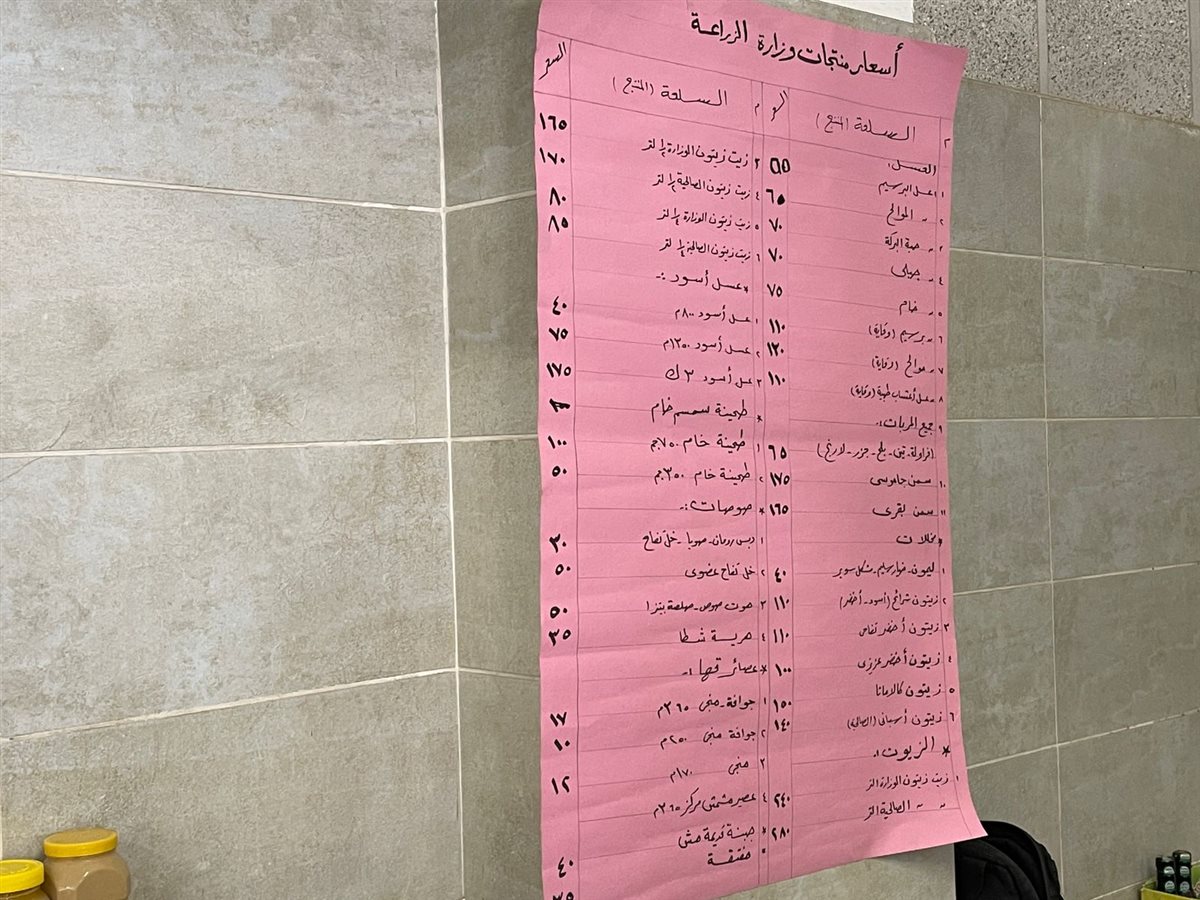 أسعار منتجات وزارة الزراعة
م السلعة (المنتج) السعر
العسل:
١ عسل البرسيم ٦٥
٢ 〃 الموالح ٦٥
٣ 〃 حبة البركة ٧٠
٤ 〃 جبلى ٧٠
٥ 〃 خام ٧٥
٦ 〃 برسيم (وقاية) ١١٠
٧ 〃 موالح (وقاية) ١٢٠
٨ 〃 عسل أعشاب طبية (وقاية) ١١٠
٩ جميع المربات:
(فراولة - تين - بلح - جزر - لارنج) ٦٥
١٠ سمن جاموسى ١٧٥
١١ سمن بقرى ١٦٥
* مخللات
١ ليمون - خيار سليم - مشكل سوبر ٤٠
٢ زيتون شرائح (أسود - أخضر) ١١٠
٣ زيتون أخضر تفاحى ١١٠
٤ زيتون أخضر عزيزى ١٠٠
٥ زيتون كالاماتا ١٥٠
٦ زيتون أسبانى (الصالحية) ١٤٠
* الزيوت:
١ زيت زيتون الوزارة ١ لتر ٢٤٠
〃 〃 الصالحية ١ لتر ٢٨٠
م السلعة (المنتج) السعر
٣ زيت زيتون الوزارة ١/٢ لتر ١٦٥
٤ زيت زيتون الصالحية ١/٢ لتر ١٧٠
٥ زيت زيتون الوزارة ١/٤ لتر ٨٠
٦ زيت زيتون الصالحية ١/٤ لتر ٨٥
* عسل أسود :-
١ عسل أسود ٨٠٠م ٤٠
٢ عسل أسود ١٣٥٠م ٧٥
٣ عسل أسود ٣ ك ١٧٥
* طحينة سمسم خام
١ طحينة خام ٧٥٠جم ١٠٠
٢ طحينة خام ٣٥٠جم ٥٠
* صوصات :-
١ دبس رومان - صويا - خل تفاح ٣٠
٢ خل تفاح عضوى ٥٠
٣ هوت صوص - صلصة بيتزا ٥٠
٤ هريسة شطا ٣٥
* عصائر قها :-
١ جوافة - منجى ٣٦٥م ١٧
٢ جوافة منجى ٢٥٠م ١٠
٣ منجى ١٧٠م ١٢
٤ عصير مشمش مركز ٣٦٥م
* جبنة قديمة مش ٤٠
〃 معتقة ٣٥